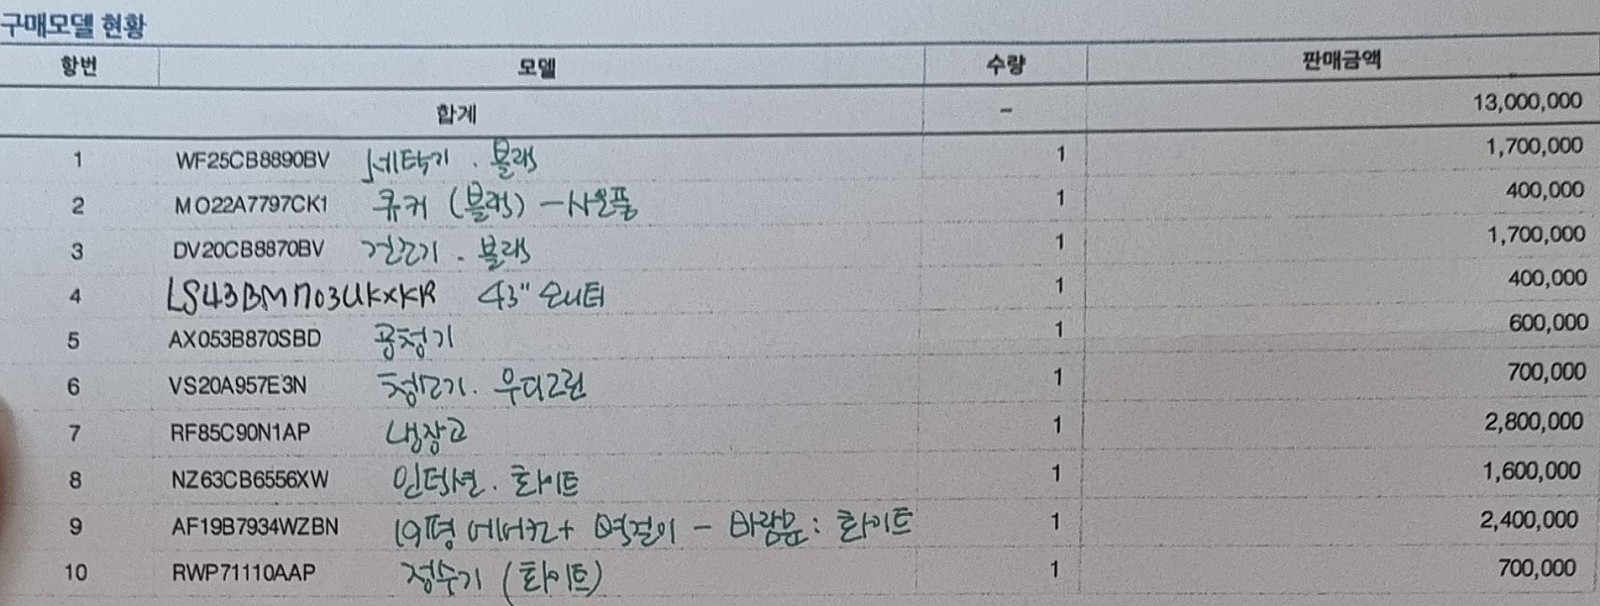 구매모델 현황
항번 모델 수량 판매금액
합계 - 13,000,000
1 WF25CB8890BV 세탁기 . 블랙 1 1,700,000
2 MO22A7797CK1 큐커 (블랙) - 사은품 1 400,000
3 DV20CB8870BV 건조기 . 블랙 1 1,700,000
4 LS43BM703UKXKR 43" 모니터 1 400,000
5 AX053B870SBD 공청기 1 600,000
6 VS20A957E3N 청소기 . 우디그린 1 700,000
7 RF85C90N1AP 냉장고 1 2,800,000
8 NZ63CB6556XW 인덕션 . 화이트 1 1,600,000
9 AF19B7934WZBN 19평 에어컨 + 벽걸이 - 바람문 : 화이트 1 2,400,000
10 RWP71110AAP 정수기 (화이트) 1 700,000